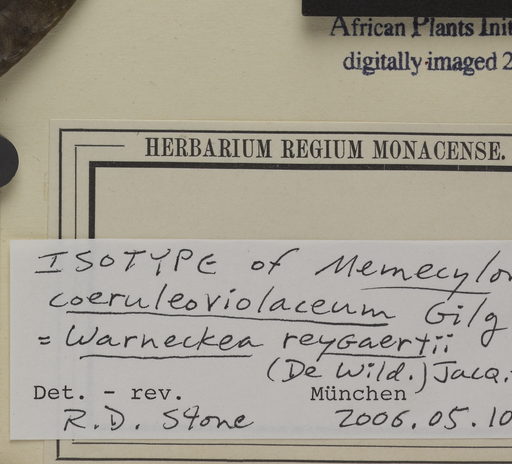 African Plants Init
digitally imaged 2
HERBARIUM REGIUM MONACENSE.
ISOTYPE of Memecylon
coeruleoviolaceum Gilg
= Warneckea reygaertii
(De Wild.) Jacq.-
Det. - rev. München
R.D. Stone 2006.05.10